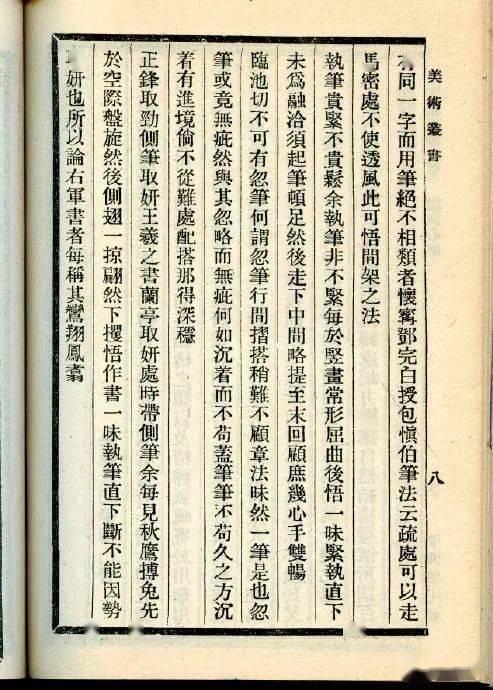 美術叢書
八
同一字而用筆絕不相類者懷寗鄧完白授包愼伯筆法云疏處可以走
馬密處不使透風此可悟間架之法
執筆貴緊不貴鬆余執筆非不緊每於竪畫常形屈曲後悟一味緊執直下
未爲融洽須起筆頓足然後走下中間略提至末回顧庶幾心手雙暢
臨池切不可有忽筆何謂忽筆行間摺搭稍難不顧章法昧然一筆是也忽
筆或竟無疵然與其忽略而無疵何如沉着而不苟蓋筆筆不苟久之方沉
着有進境倘不從難處配搭那得深穩
正鋒取勁側筆取妍王羲之書蘭亭取妍處時帶側筆余每見秋鷹搏兔先
於空際盤旋然後側翅一掠翩然下攫悟作書一味執筆直下斷不能因勢
妍也所以論右軍書者每稱其鸞翔鳳翥